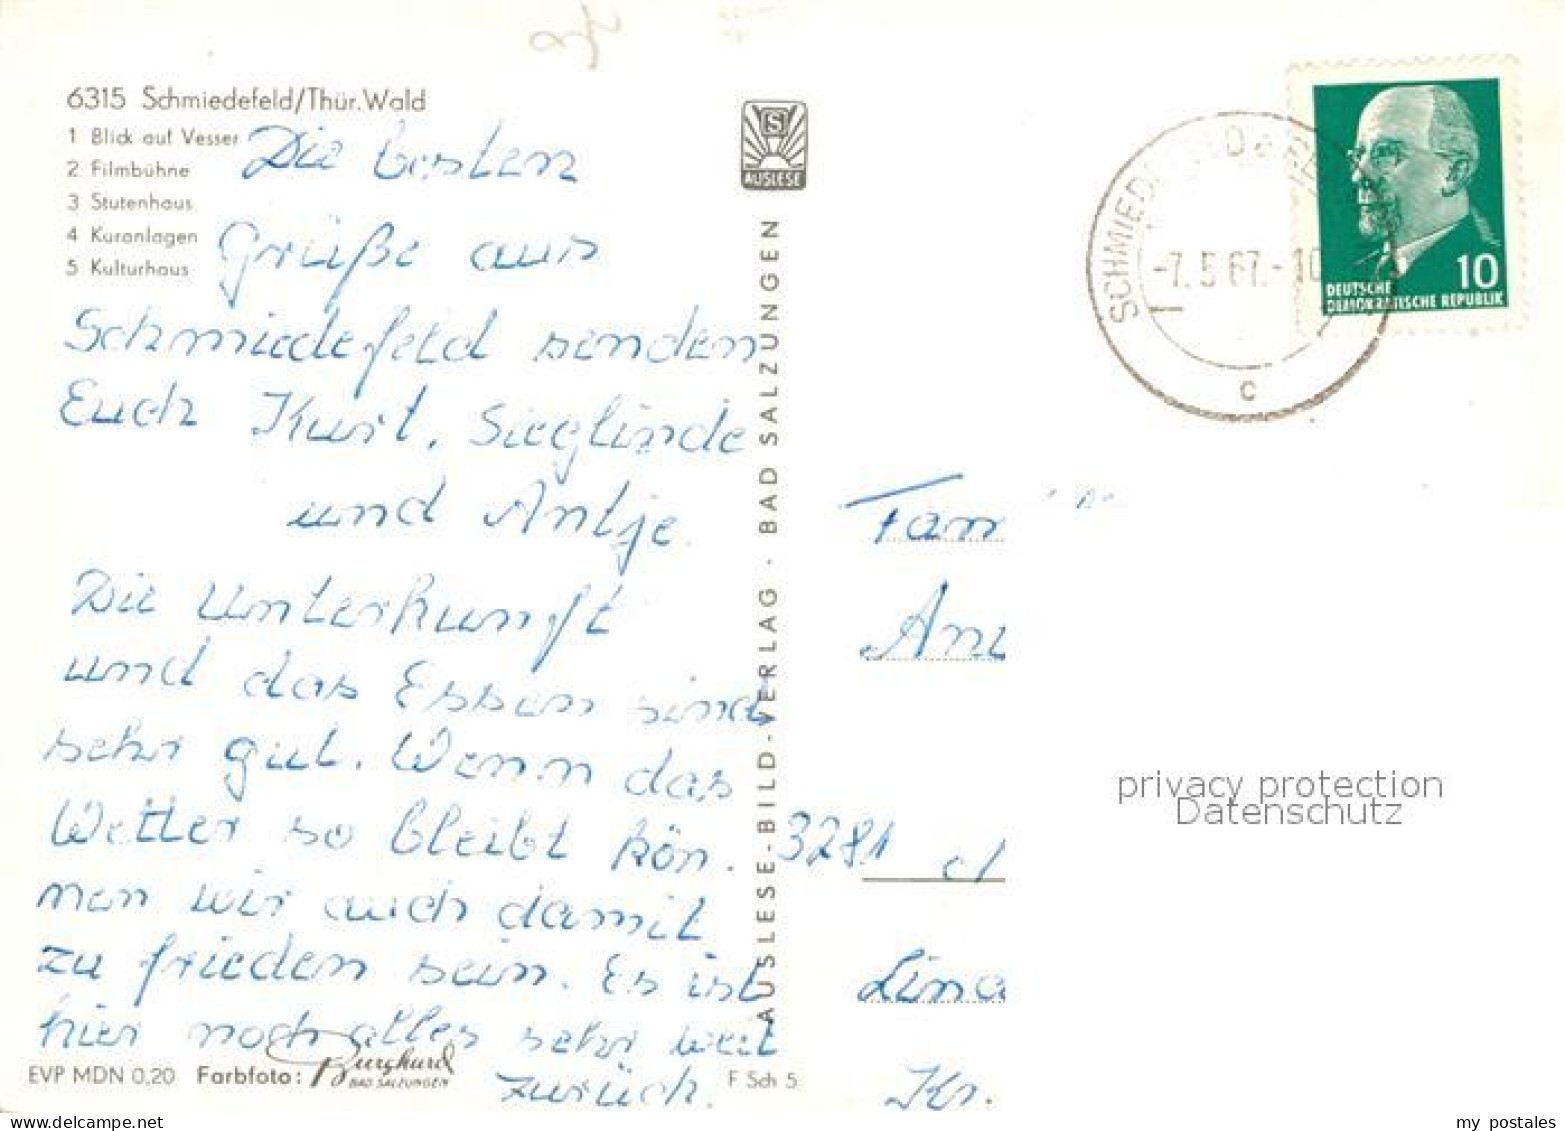 6315 Schmiedefeld/Thür.Wald
1 Blick auf Vesser
2 Filmbühne
3 Stutenhaus
4 Kuranlagen
5 Kulturhaus
Die besten
Grüße aus
Schmiedefeld senden
Euch Kurt, Sieglinde
und Antje.
Die Unterkunft
und das Essen sind
sehr gut. Wenn das
Wetter so bleibt kön-
nen wir auch damit
zu frieden sein. Es ist
hier noch alles sehr weit
zurück.
EVP MDN 0,20 Farbfoto: Burghard
BAD SALZUNGEN
F Sch 5
S
AUSLESE
AUSLESE-BILD-VERLAG · BAD SALZUNGEN
-7.5.67.-10
C
10
DEUTSCHE
DEMOKRATISCHE REPUBLIK
Fam
3281
Lina
Kr.
privacy protection
Datenschutz
my postales
delcampe.net